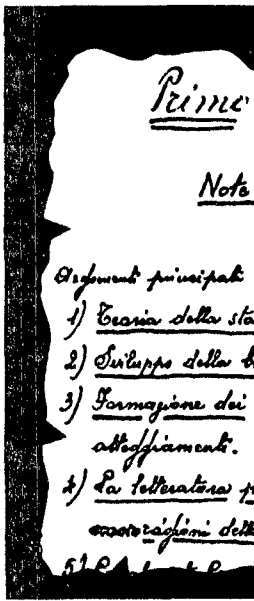 Primo
Note
Argomenti principali
1) Teoria della sto
2) Sviluppo della b
3) Formazione dei
atteggiamenti.
4) La letteratura p
ragioni dell
5)